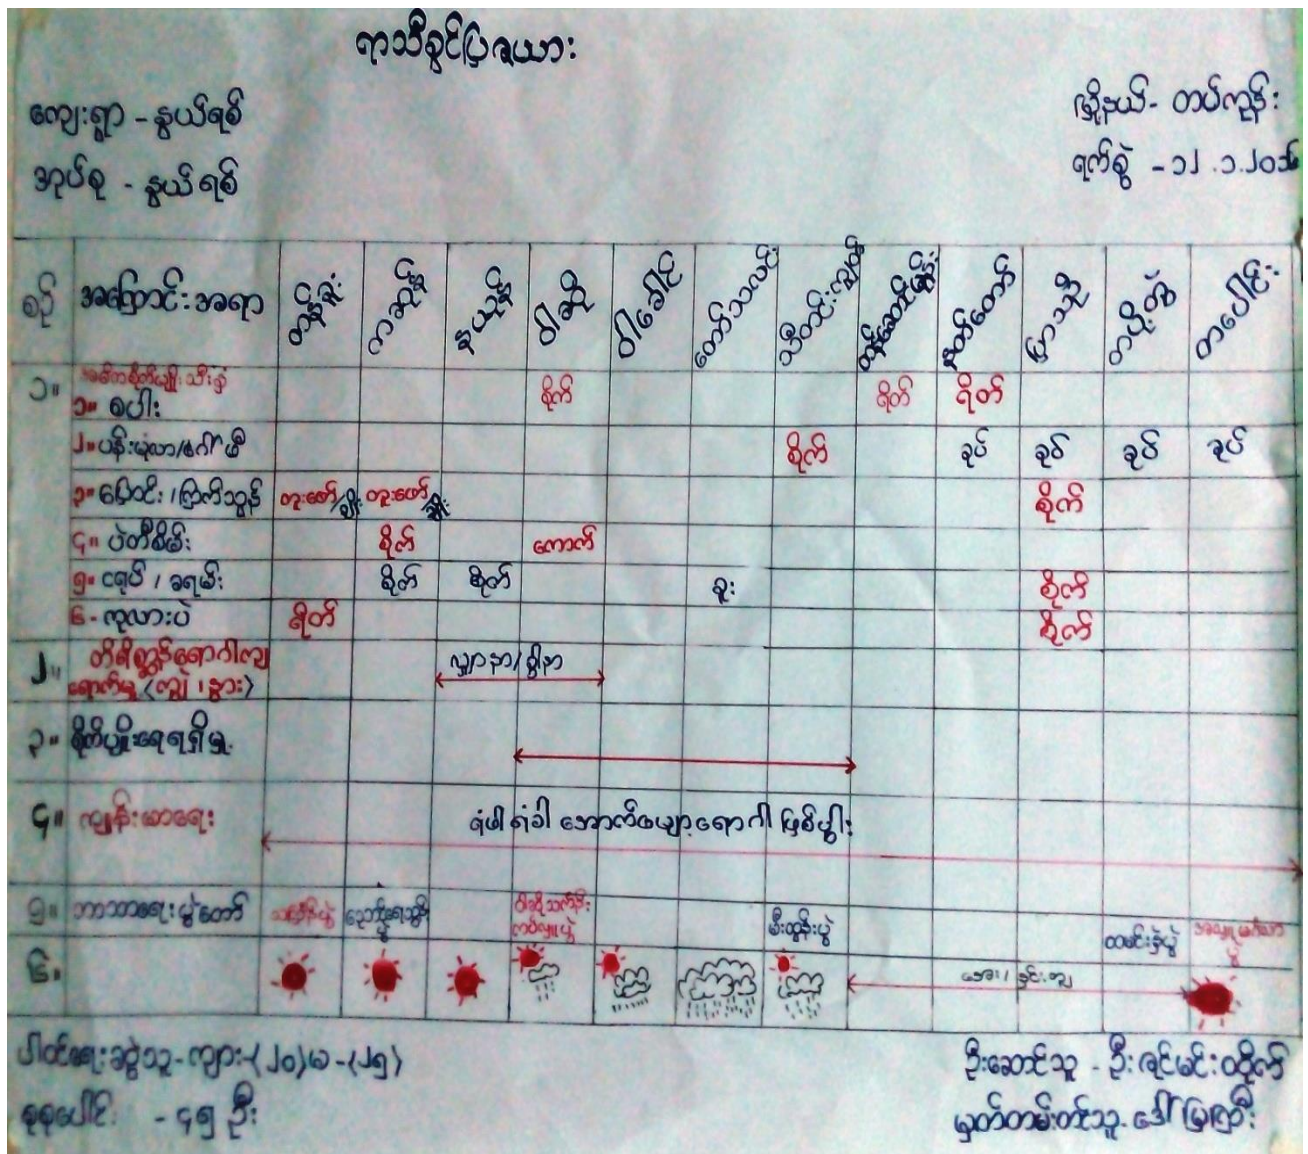 ရာသီခွင်ပြဇယား
ကျေးရွာ - နွယ်ရစ်
မြို့နယ် - တပ်ကုန်း
အုပ်စု - နွယ်ရစ်
ရက်စွဲ - ၁၂.၁.၂၀၁၆
စဉ် အကြောင်းအရာ တန်ခူး ကဆုန် နယုန် ဝါဆို ဝါခေါင် တော်သလင်း သီတင်းကျွတ် တန်ဆောင်မုန်း နတ်တော် ပြာသို တပို့တွဲ တပေါင်း
၁။ အဓိကစိုက်ပျိုးသီးနှံ
၁။ စပါး စိုက် ရိတ် ရိတ်
၂။ ပန်းမုံလာ/ဂေါ်ဖီ စိုက် ခုပ် ခုပ် ခုပ် ခုပ်
၃။ ပြောင်း / ကြက်သွန် တူးဖော်/ချိုး တူးဖော်/ချိုး စိုက်
၄။ ပဲတီစိမ်း စိုက် ကောက်
၅။ ငရုပ် / ခရမ်း စိုက် စိုက် ခူး စိုက်
၆- ကုလားပဲ ရိတ် စိုက်
၂။ တိရိစ္ဆာန်ရောဂါကျ
ရောက်မှု (ကျွဲ ၊ နွား) လျှာနာ/ခွါနာ
၃။ စိုက်ပျိုးရေရရှိမှု
၄။ ကျန်းမာရေး ရံဖါရံခါ အောက်ပျော့ရောဂါ ဖြစ်ပွါး
၅။ ဘာသာရေးပွဲတော် သင်္ကြန်ပွဲ ညောင်ရေသွန်းပွဲ ဝါဆိုသင်္ကန်းကပ်လှူပွဲ မီးထွန်းပွဲ ထမင်းနှဲပွဲ
၆။ အေး / နှင်းကျ
ပါဝင်ရေးဆွဲသူ - ကျား-(၂၀) မ -(၂၅)
ဦးဆောင်သူ - ဦးဇင်မင်းထိုက်
စုစုပေါင်း - ၄၅ ဦး
မှတ်တမ်းတင်သူ - ဒေါ်မြကြီး